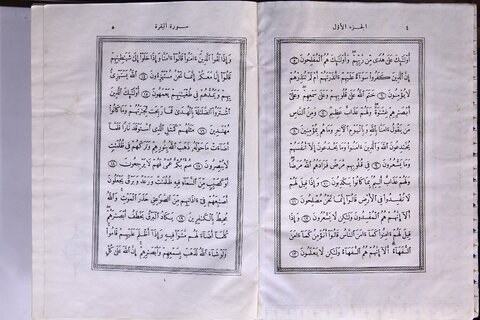 ٤ الجزء الأول
أُولَٰئِكَ عَلَىٰ هُدًى مِّن رَّبِّهِمْ وَأُولَٰئِكَ هُمُ الْمُفْلِحُونَ ٥
إِنَّ الَّذِينَ كَفَرُوا سَوَاءٌ عَلَيْهِمْ ءَأَنذَرْتَهُمْ أَمْ لَمْ تُنذِرْهُمْ
لَا يُؤْمِنُونَ ٦ خَتَمَ اللَّهُ عَلَىٰ قُلُوبِهِمْ وَعَلَىٰ سَمْعِهِمْ وَعَلَىٰ
أَبْصَٰرِهِمْ غِشَٰوَةٌ وَلَهُمْ عَذَابٌ عَظِيمٌ ٧ وَمِنَ النَّاسِ
مَن يَقُولُ ءَامَنَّا بِاللَّهِ وَبِالْيَوْمِ الْءَاخِرِ وَمَا هُم بِمُؤْمِنِينَ ٨
يُخَٰدِعُونَ اللَّهَ وَالَّذِينَ ءَامَنُوا وَمَا يَخْدَعُونَ إِلَّا أَنفُسَهُمْ
وَمَا يَشْعُرُونَ ٩ فِي قُلُوبِهِم مَّرَضٌ فَزَادَهُمُ اللَّهُ مَرَضًا
وَلَهُمْ عَذَابٌ أَلِيمٌ بِمَا كَانُوا يَكْذِبُونَ ١٠ وَإِذَا قِيلَ لَهُمْ
لَا تُفْسِدُوا فِي الْأَرْضِ قَالُوا إِنَّمَا نَحْنُ مُصْلِحُونَ ١١
أَلَا إِنَّهُمْ هُمُ الْمُفْسِدُونَ وَلَٰكِن لَّا يَشْعُرُونَ ١٢ وَإِذَا
قِيلَ لَهُمْ ءَامِنُوا كَمَا ءَامَنَ النَّاسُ قَالُوا أَنُؤْمِنُ كَمَا ءَامَنَ
السُّفَهَاءُ أَلَا إِنَّهُمْ هُمُ السُّفَهَاءُ وَلَٰكِن لَّا يَعْلَمُونَ ١٣
سورة البقرة ٥
وَإِذَا لَقُوا الَّذِينَ ءَامَنُوا قَالُوا ءَامَنَّا وَإِذَا خَلَوْا إِلَىٰ شَيَٰطِينِهِمْ
قَالُوا إِنَّا مَعَكُمْ إِنَّمَا نَحْنُ مُسْتَهْزِءُونَ ١٤ اللَّهُ يَسْتَهْزِئُ
بِهِمْ وَيَمُدُّهُمْ فِي طُغْيَٰنِهِمْ يَعْمَهُونَ ١٥ أُولَٰئِكَ الَّذِينَ
اشْتَرَوُا الضَّلَٰلَةَ بِالْهُدَىٰ فَمَا رَبِحَت تِّجَٰرَتُهُمْ وَمَا كَانُوا
مُهْتَدِينَ ١٦ مَثَلُهُمْ كَمَثَلِ الَّذِي اسْتَوْقَدَ نَارًا فَلَمَّا
أَضَاءَتْ مَا حَوْلَهُ ذَهَبَ اللَّهُ بِنُورِهِمْ وَتَرَكَهُمْ فِي ظُلُمَٰتٍ
لَّا يُبْصِرُونَ ١٧ صُمٌّ بُكْمٌ عُمْيٌ فَهُمْ لَا يَرْجِعُونَ ١٨
أَوْ كَصَيِّبٍ مِّنَ السَّمَاءِ فِيهِ ظُلُمَٰتٌ وَرَعْدٌ وَبَرْقٌ يَجْعَلُونَ
أَصَٰبِعَهُمْ فِي ءَاذَانِهِم مِّنَ الصَّوَٰعِقِ حَذَرَ الْمَوْتِ وَاللَّهُ
مُحِيطٌ بِالْكَٰفِرِينَ ١٩ يَكَادُ الْبَرْقُ يَخْطَفُ أَبْصَٰرَهُمْ
كُلَّمَا أَضَاءَ لَهُم مَّشَوْا فِيهِ وَإِذَا أَظْلَمَ عَلَيْهِمْ قَامُوا
وَلَوْ شَاءَ اللَّهُ لَذَهَبَ بِسَمْعِهِمْ وَأَبْصَٰرِهِمْ إِنَّ اللَّهَ عَلَىٰ كُلِّ